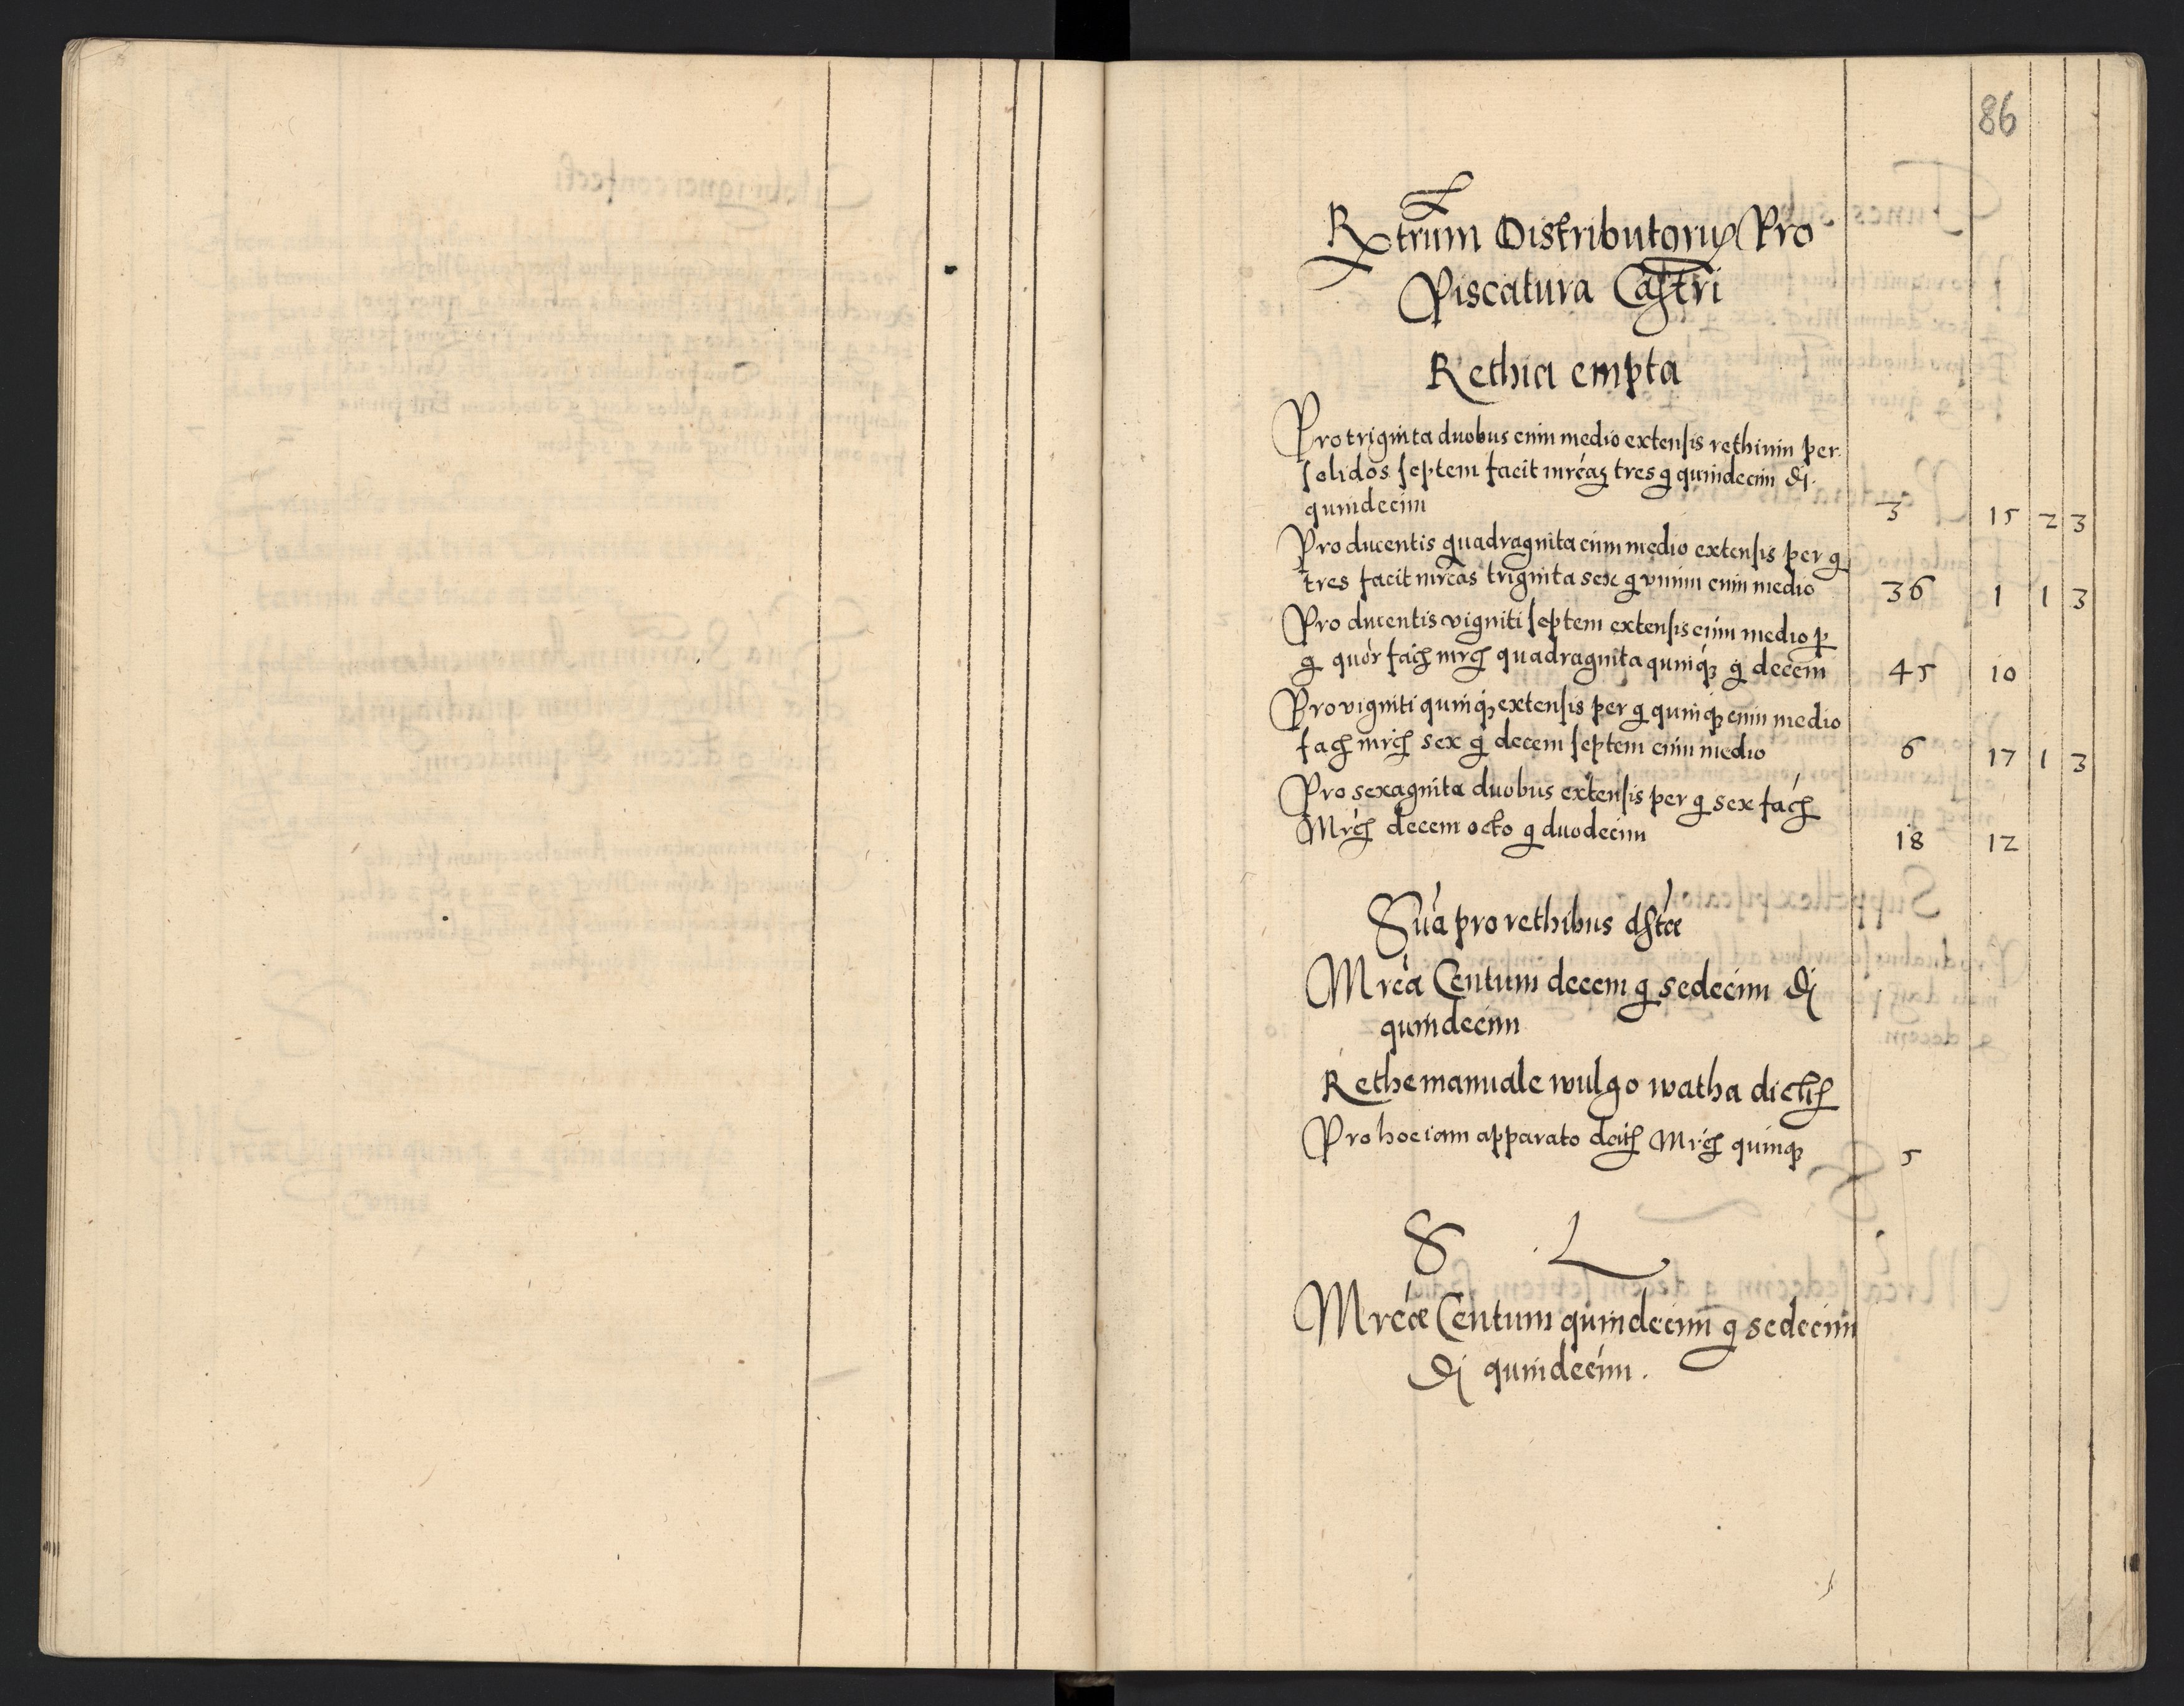 86
Rxtrum Distributorum Pro
Piscatura Castri
Rethia empta
Pro triginta duobus cum medio extensis rethium per
solidos septem facit mrcas tres g quindecim di 
quindecim 3 15 2 3
Pro ducentis quadraginta cum medio extensis per g
tres facit mrcas triginta sex g unum cum medio 36 1 1 3
Pro ducentis viginti septem extensis cum medio p
g quor facit mrcas quadraginta quinque g decem 45 10
Pro viginti quinque extensis per g quinque cum medio
facit mrcas sex g decem septem cum medio 6 17 1 3
Pro sexaginta duobus extensis per g sex facit
Mrcas decem octo g duodecim 18 12
Sua pro rethibus dstae
Mrca Centum decem g sedecim di
quindecim
Rethe manuale wulgo watha dictum
Pro hoc iam apparato Mrcas quinque 5
S L
Mrcae Centum quindecim g sedecim
di quindecim.